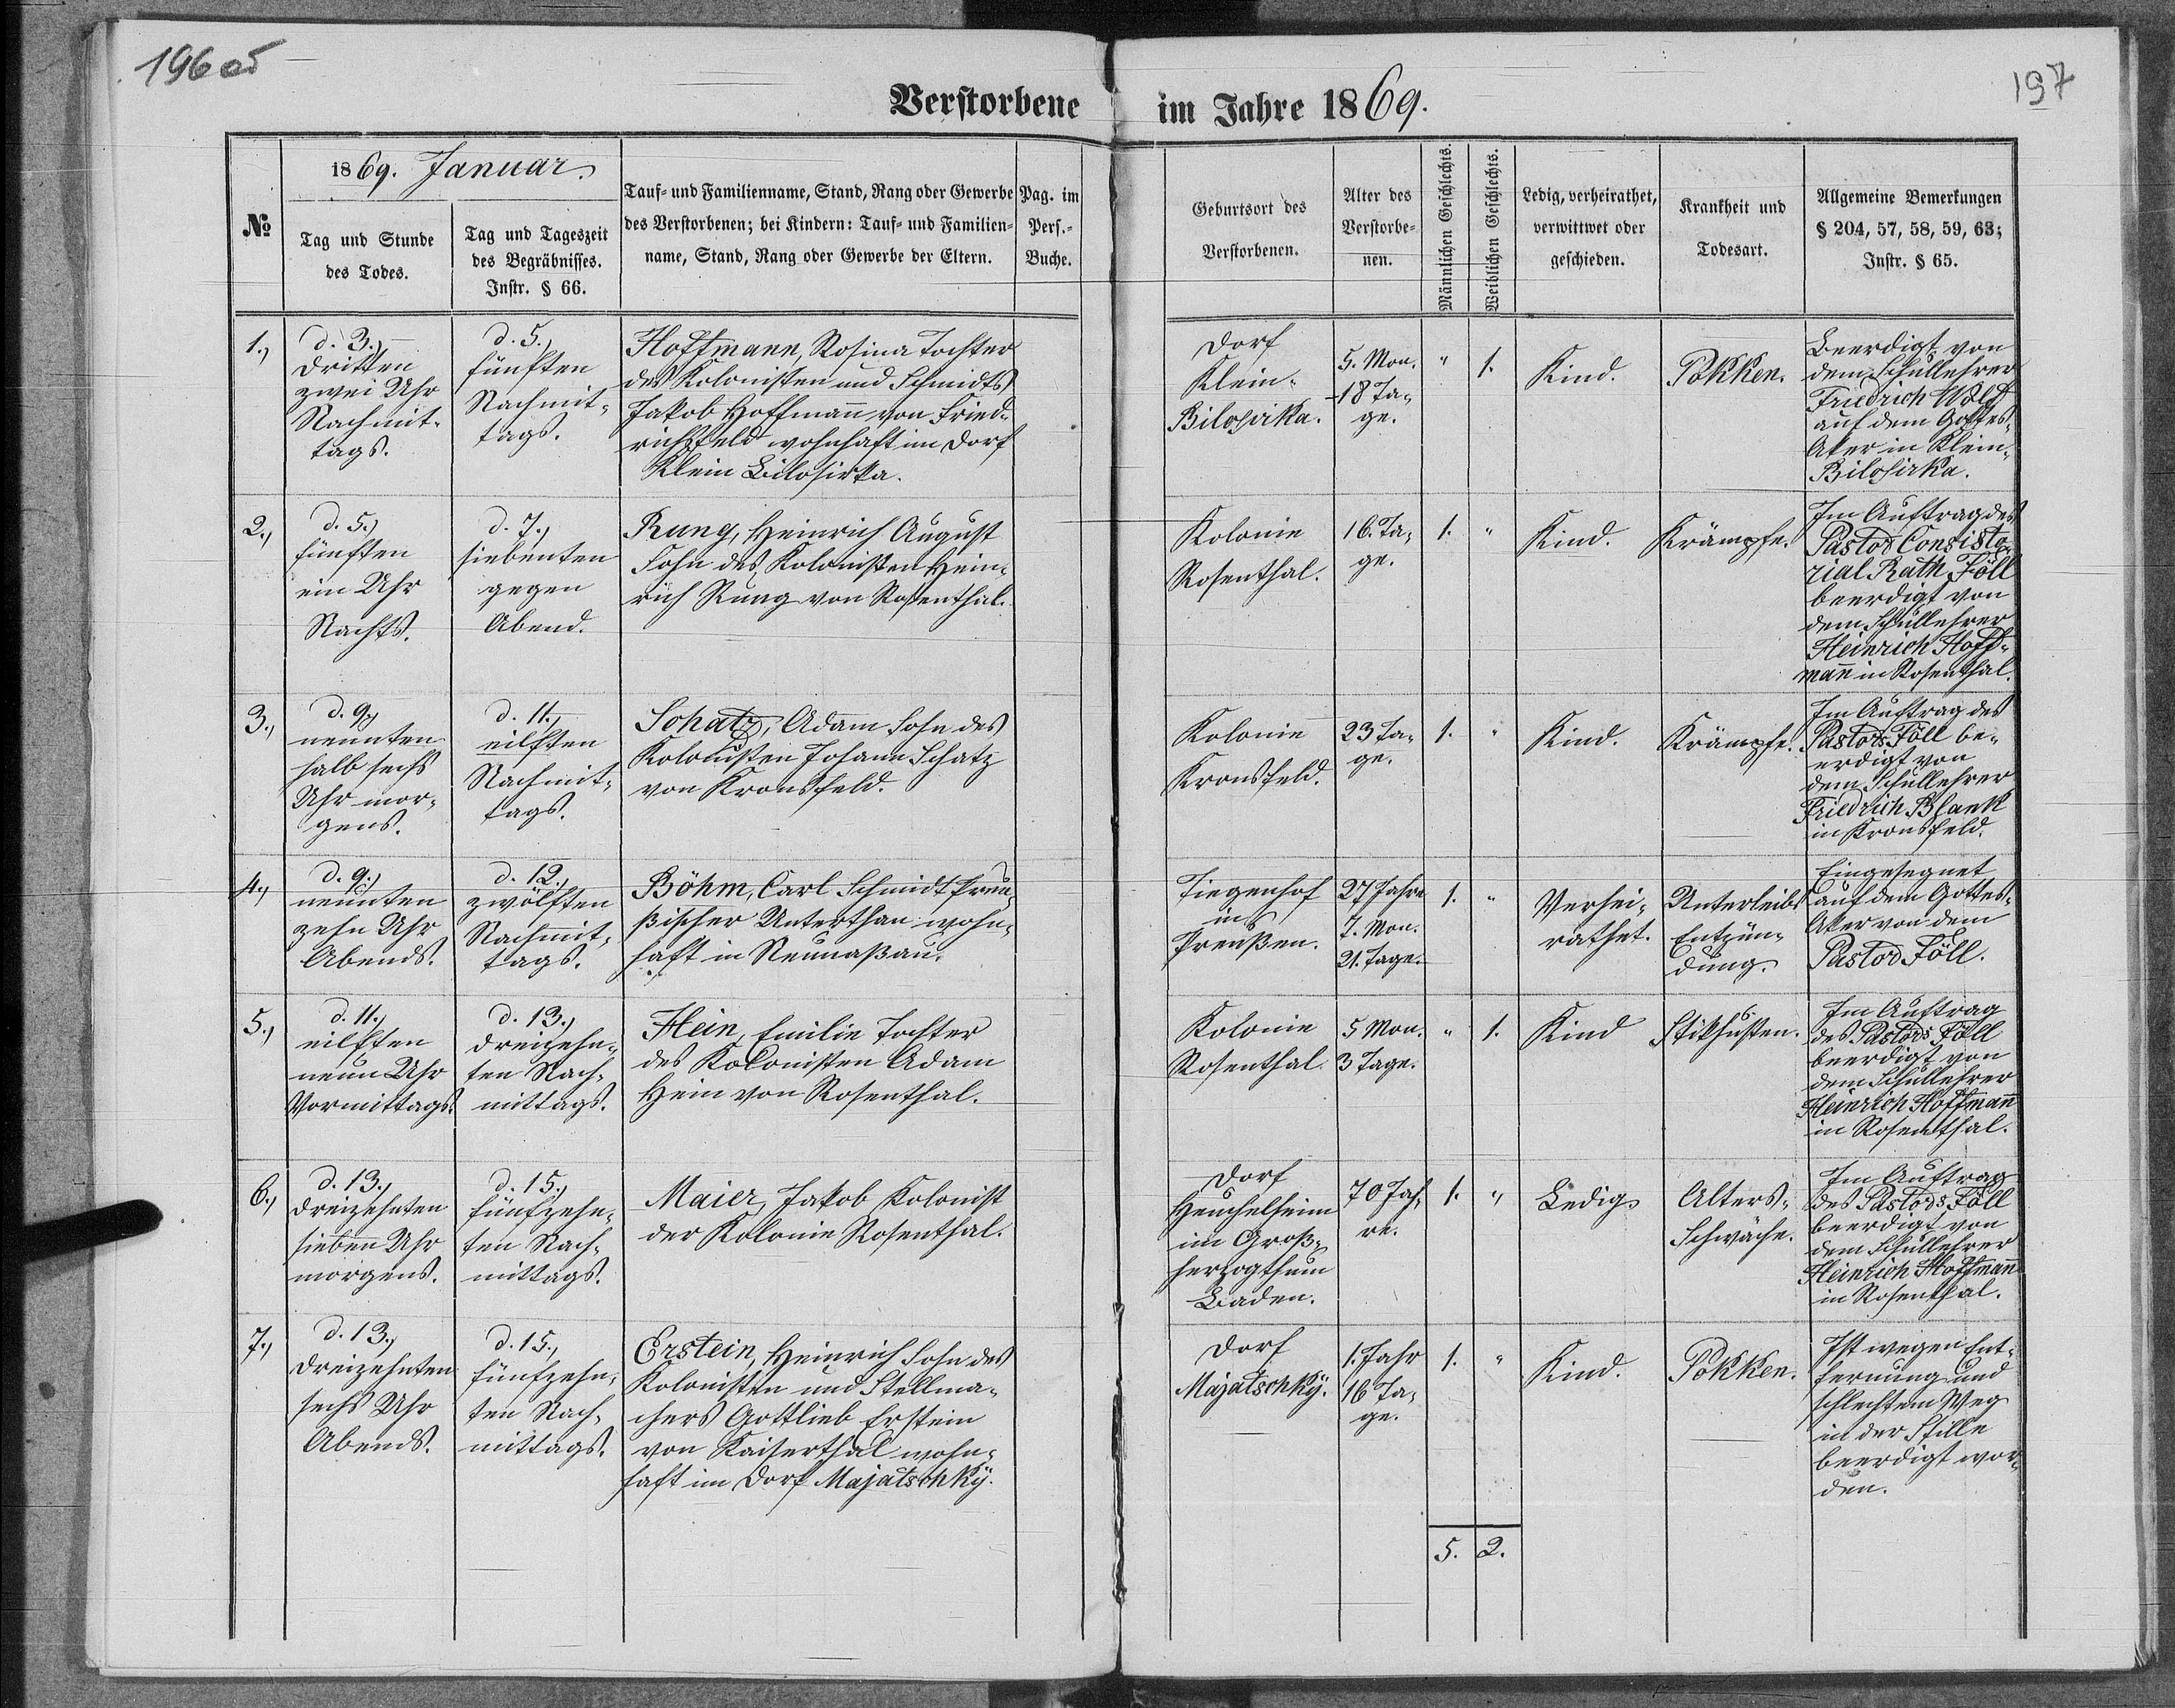 196 об
197
Verstorbene im Jahre 1869.
№
1869. Januar.
Tag und Stunde
des Todes.
Tag und Tageszeit
des Begräbnisses.
Instr. § 66.
Tauf- und Familienname, Stand, Rang oder Gewerbe
des Verstorbenen; bei Kindern: Tauf- und Familien-
name, Stand, Rang oder Gewerbe der Eltern.
Pag. im
Pers.-
Buche.
Geburtsort des
Verstorbenen.
Alter des
Verstorbe-
nen.
Männlichen Geschlechts.
Weiblichen Geschlechts.
Ledig, verheirathet,
verwittwet oder
geschieden.
Krankheit und
Todesart.
Allgemeine Bemerkungen
§ 204, 57, 58, 59, 63;
Instr. § 65.
1.,
d. 3.,
dritten
zwei Uhr
Nachmit-
tags.
d. 5.,
fünften
Nachmit-
tags.
Hoffmann, Rosina Tochter
des Kolonisten und Schmidts
Jakob Hoffmañ von Fried-
richsfeld wohnhaft im Dorf
Klein Bilosirka.
Dorf
Klein-
Bilosirka.
5. Mon.
18 Ta-
ge.
"
1.
Kind.
Pokken.
Beerdigt von
dem Schullehrer
Friedrich Wolf
auf dem Gottes-
Aker in Klein-
Bilosirka.
2.,
d. 5.,
fünften
ein Uhr
Nachts.
d. 7.,
siebenten
gegen
Abend.
Rung, Heinrich August
Sohn des Kolonisten Hein-
rich Rung von Rosenthal.
Kolonie
Rosenthal.
16. Ta-
ge.
1.
"
Kind.
Krämpfe.
Im Auftrag des
Pastors Consisto-
rial Rath Föll
beerdigt von
dem Schullehrer
Heinrich Hoff-
mañ in Rosenthal.
3.,
d. 9.,
neunten
halb sechs
Uhr mor-
gens.
d. 11.,
eilften
Nachmit-
tags.
Schatz, Adam Sohn des
Kolonisten Johann Schatz
von Kronsfeld.
Kolonie
Kronsfeld.
23 Ta-
ge.
1.
"
Kind.
Krämpfe.
Im Auftrag des
Pastors Föll be-
erdigt von
dem Schullehrer
Friedrich Blank
in Kronsfeld.
4.,
d. 9.,
neunten
zehn Uhr
Abends.
d. 12.,
zwölften
Nachmit-
tags.
Böhm, Carl Schmidt Preu-
ßischer Unterthan wohn-
haft in Neunaßau.
Tiegenhof
in
Preußen.
27 Jahre
7. Mon.
21. Tage.
1.
"
Verhei-
rathet.
Unterleibs
Entzün-
dung.
Eingesegnet
auf dem Gottes-
Aker von dem
Pastor Föll.
5.,
d. 11.,
eilften
neun Uhr
Vormittags.
d. 13.,
dreizehn-
ten Nach-
mittags.
Hein, Emilie Tochter
des Kolonisten Adam
Hein von Rosenthal.
Kolonie
Rosenthal.
5 Mon.
3 Tage.
"
1.
Kind
Stikhusten.
Im Auftrag
des Pastors Föll
beerdigt von
dem Schullehrer
Heinrich Hoffmañ
in Rosenthal.
6.,
d. 13.,
dreizehnten
sieben Uhr
morgens.
d. 15.,
fünfzehn-
ten Nach-
mittags.
Maier, Jakob Kolonist
der Kolonie Rosenthal.
Dorf
Heuchelheim
im Groß-
herzogthum
Baden.
70 Jah-
re.
1.
"
Ledig
Alters-
Schwäche.
Im Auftrag
des Pastors Föll
beerdigt von
dem Schullehrer
Heinrich Hoffmañ
in Rosenthal.
7.,
d. 13.,
dreizehnten
sechs Uhr
Abends.
d. 15.,
fünfzehn-
ten Nach-
mittags.
Erstein, Heinrich Sohn des
Kolonisten und Stellma-
chers Gottlieb Erstein
von Kaiserthal wohn-
haft im Dorf Majatschkÿ.
Dorf
Majatschkÿ.
1. Jahr
16 Ta-
ge.
1.
"
Kind.
Pokken.
Ist wegen Ent-
fernung und
schlechtem Weg
in der Stille
beerdigt wor-
den.
5. 2.